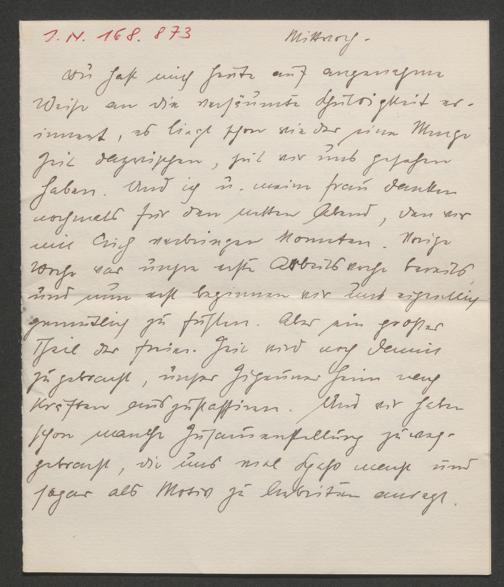 I. N. 168.873
Mittwoch.
Du hast mich heute auf angenehme
Weise an die versäumte Schuldigkeit er-
innert, es liegt schon wieder eine Menge
Zeit dazwischen, seit wir uns gesehen
haben. Und ich u. meine Frau danken
nochmals für den netten Abend, den wir
mit Euch verbringen konnten. Vorige
Woche war unsre erste Arbeitswoche bereits
und nun erst beginnen wir uns eigentlich
gemütlich zu fühlen. Aber ein großer
Theil der freien Zeit wird noch damit
zugebracht, unser Zigeunerheim nach
Kräften auszustaffieren. Und wir haben
schon manche Zusammenstellung zuweg-
gebracht, die uns viel Spaß macht und
sogar als Motiv zu Arbeiten anregt.